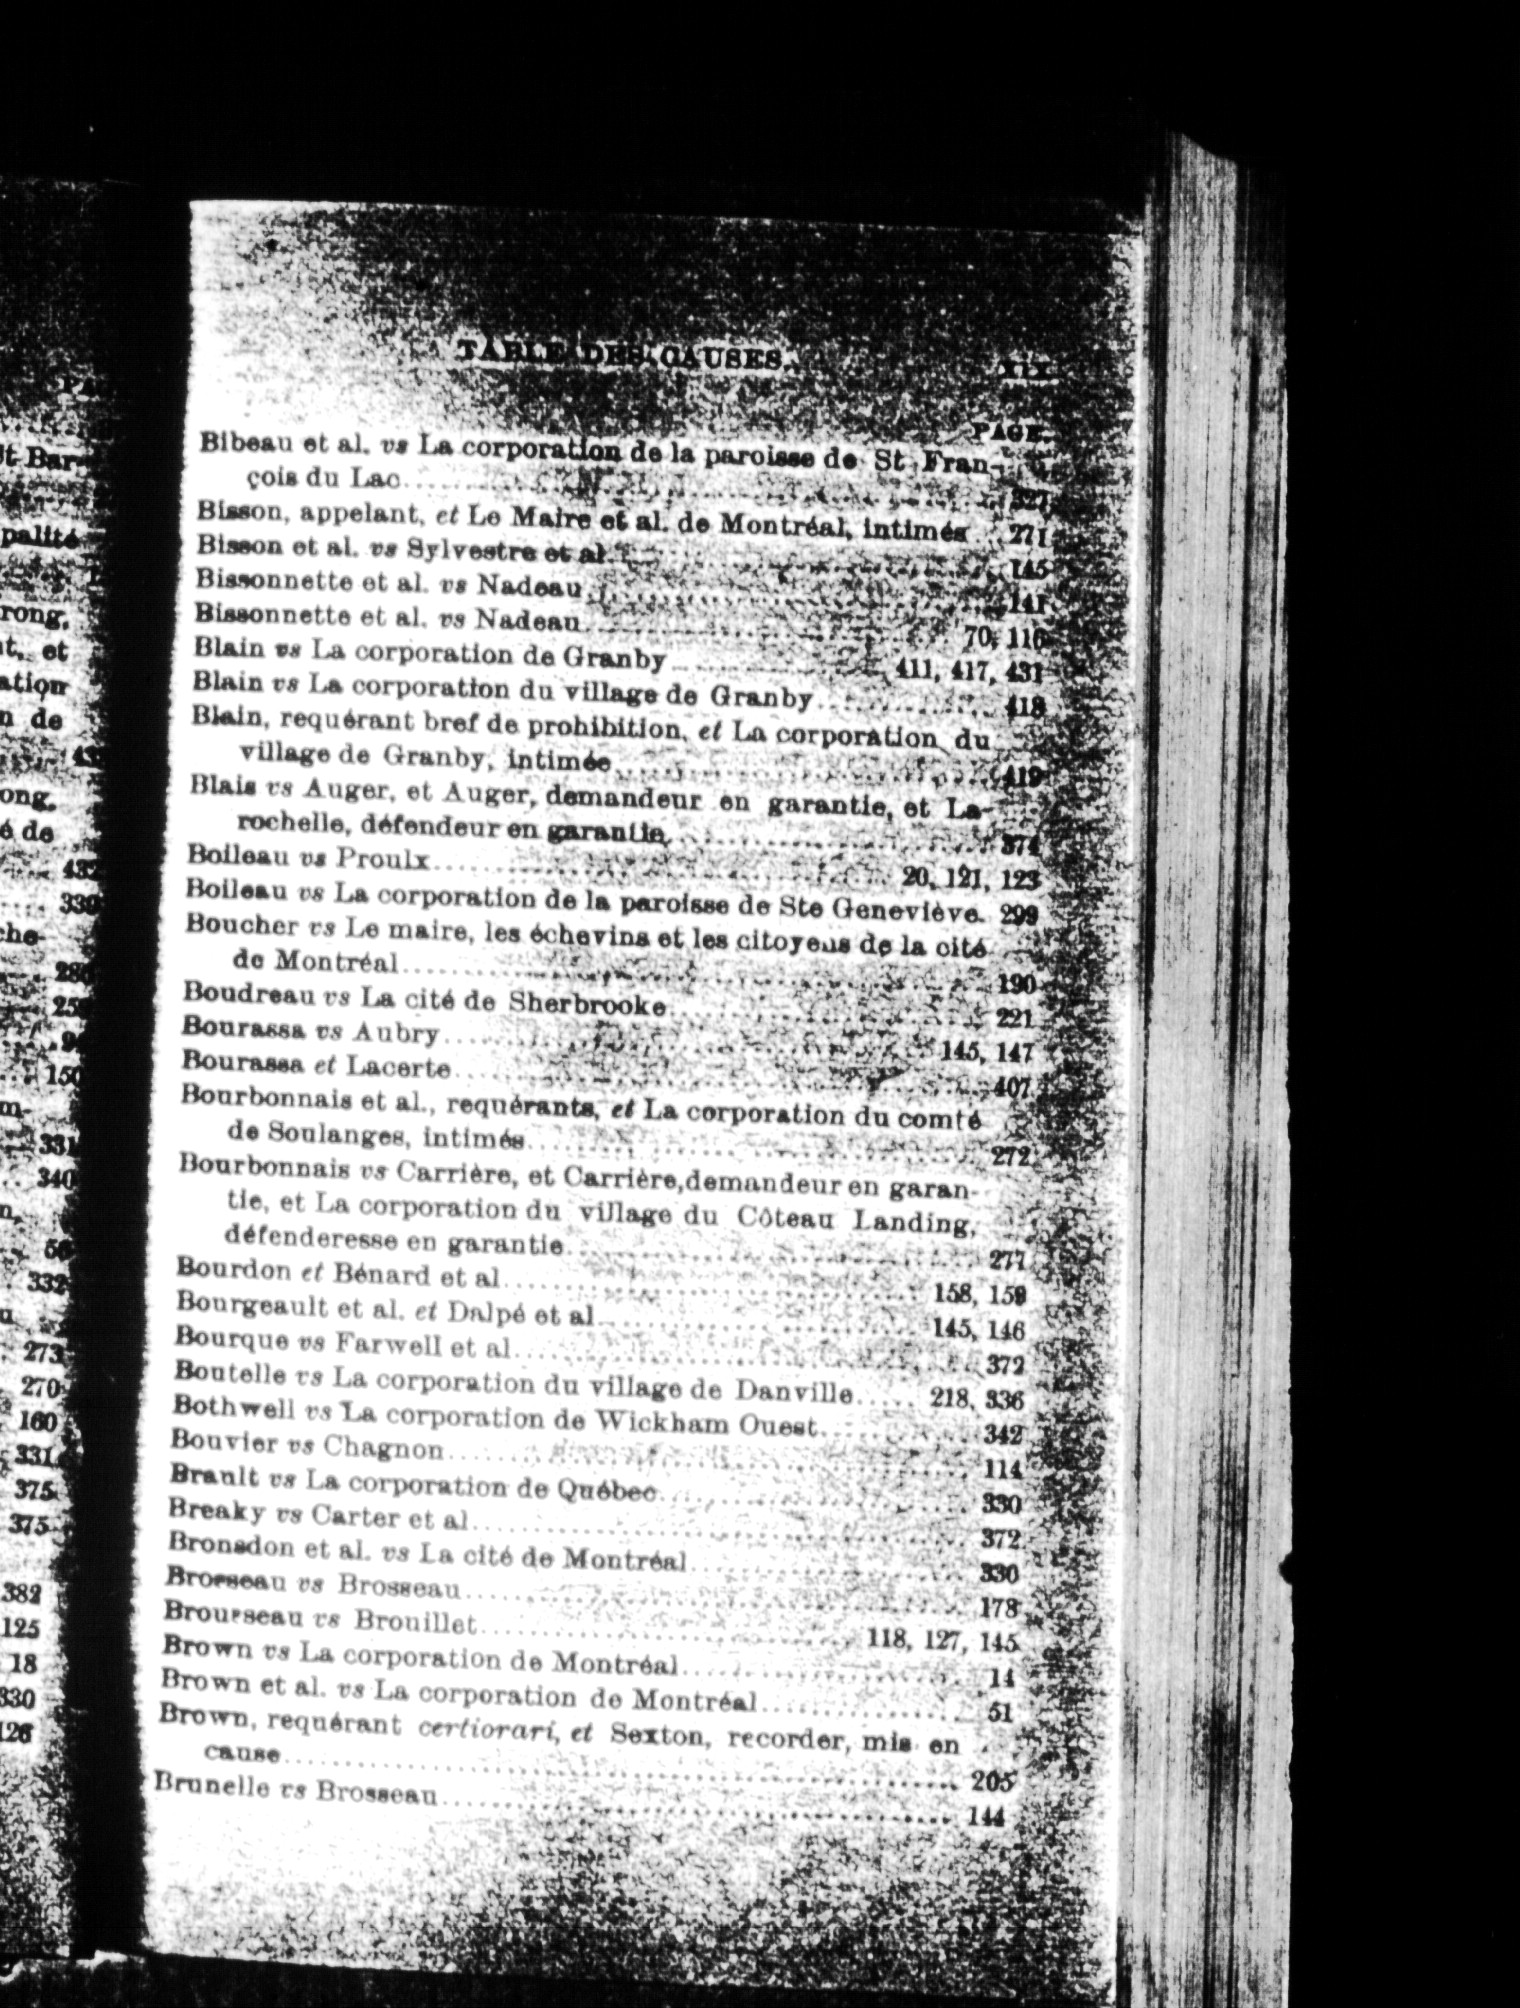 TABLE DES CAUSES. xix
PAGE.
Bibeau et al. vs La corporation de la paroisse de St Fran-
çois du Lac 327
Bisson, appelant, et Le Maire et al. de Montréal, intimés 271
Bisson et al. vs Sylvestre et al 145
Bissonnette et al. vs Nadeau 141
Bissonnette et al. vs Nadeau 70, 116
Blain vs La corporation de Granby 411, 417, 431
Blain vs La corporation du village de Granby 418
Blain, requérant bref de prohibition, et La corporation du
village de Granby, intimée 419
Blais vs Auger, et Auger, demandeur en garantie, et La-
rochelle, défendeur en garantie 374
Boileau vs Proulx 20, 121, 123
Boileau vs La corporation de la paroisse de Ste Geneviève. 299
Boucher vs Le maire, les échevins et les citoyens de la cité
de Montréal 190
Boudreau vs La cité de Sherbrooke 221
Bourassa vs Aubry 145, 147
Bourassa et Lacerte 407
Bourbonnais et al., requérants, et La corporation du comté
de Soulanges, intimés 272
Bourbonnais vs Carrière, et Carrière,demandeur en garan-
tie, et La corporation du village du Côteau Landing,
défenderesse en garantie 277
Bourdon et Bénard et al 158, 159
Bourgeault et al. et Dalpé et al 145, 146
Bourque vs Farwell et al 372
Boutelle vs La corporation du village de Danville 218, 336
Bothwell vs La corporation de Wickham Ouest 342
Bouvier vs Chagnon 114
Brault vs La corporation de Québec 330
Breaky vs Carter et al 372
Bronsdon et al. vs La cité de Montréal 330
Brosseau vs Brosseau 178
Brousseau vs Brouillet 118, 127, 145
Brown vs La corporation de Montréal 14
Brown et al. vs La corporation de Montréal 51
Brown, requérant certiorari, et Sexton, recorder, mis en
cause 205
Brunelle vs Brosseau 144